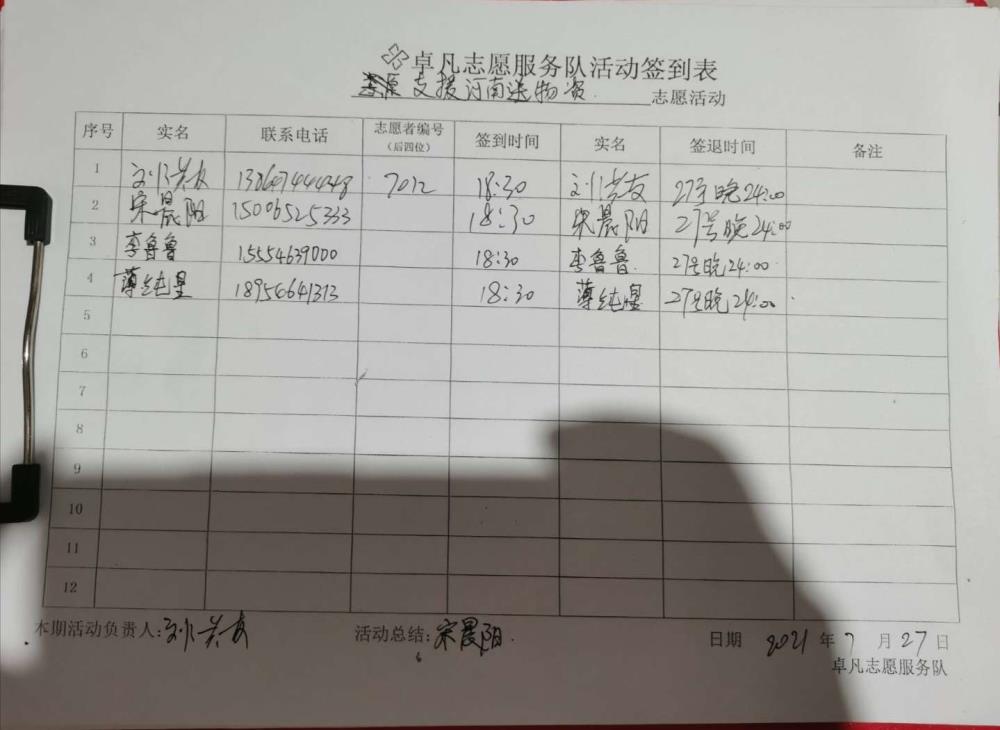 卓凡志愿服务队活动签到表
支援河南送物资 志愿活动
序号 实名 联系电话 志愿者编号（后四位） 签到时间 实名 签退时间 备注
1 7012 18:30 27号晚24:00
2 宋晨阳 15006525333 18:30 宋晨阳 27号晚24:00
3 李鲁鲁 15554639000 18:30 李鲁鲁 27号晚24:00
4 18954641313 18:30 27号晚24:00
5
6
7
8
9
10
11
12
本期活动负责人: 活动总结:宋晨阳 日期 2021 年 7 月 27 日
卓凡志愿服务队